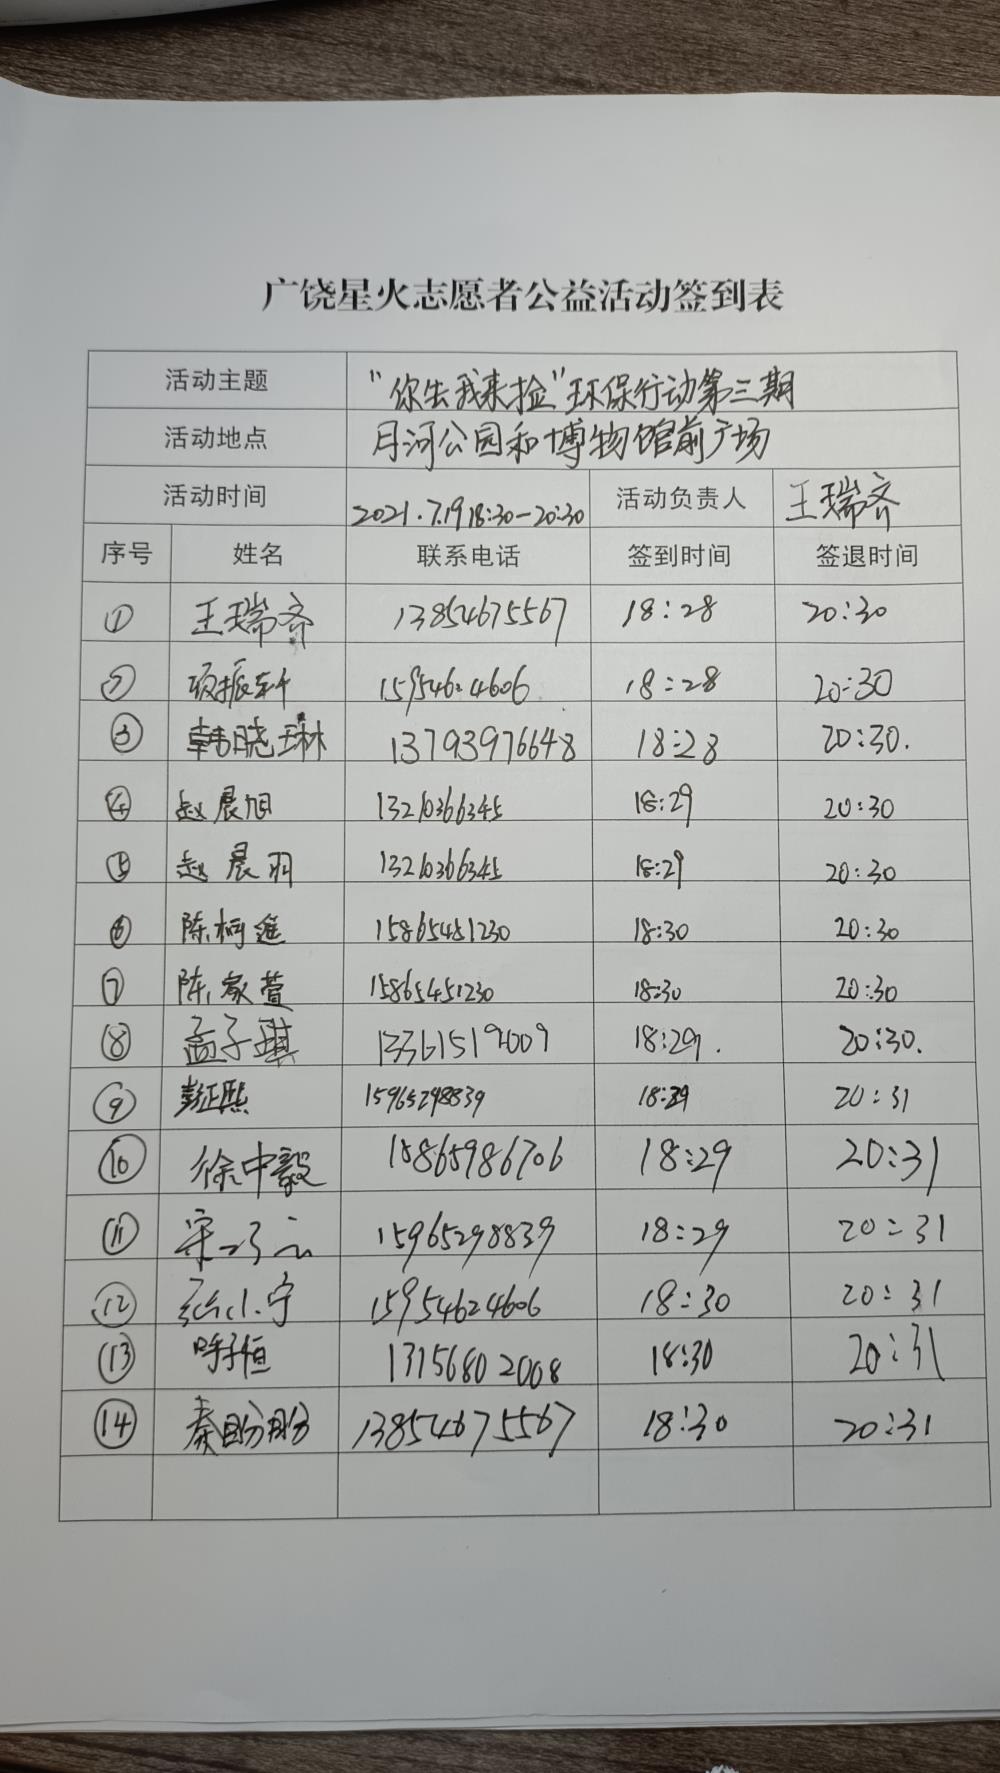 广饶星火志愿者公益活动签到表
活动主题 “你丢我来捡”环保行动第三期
活动地点 月河公园和博物馆前广场
活动时间 2021.7.19 18:30-20:30 活动负责人 王瑞齐
序号 姓名 联系电话 签到时间 签退时间
① 王瑞齐 13854675567 18:28 20:30
② 项振轩 15954624606 18:28 20:30
③ 韩晓琳 13793976648 18:28 20:30.
④ 赵晨旭 13210366345 18:29 20:30
⑤ 赵晨羽 13210366345 18:29 20:30
⑥ 陈柯 15865451230 18:30 20:30
⑦ 陈家萱 15865451230 18:30 20:30
⑧ 孟子琪 13361519009 18:29. 20:30.
⑨ 彭正熙 15965298839 18:29 20:31
⑩ 徐中毅 15865986706 18:29 20:31
⑪ 15965298839 18:29 20:31
⑫ 张小宁 15954624606 18:30 20:31
⑬ 呼子恒 13156802008 18:30 20:31
⑭ 秦盼盼 13854675567 18:30 20:31